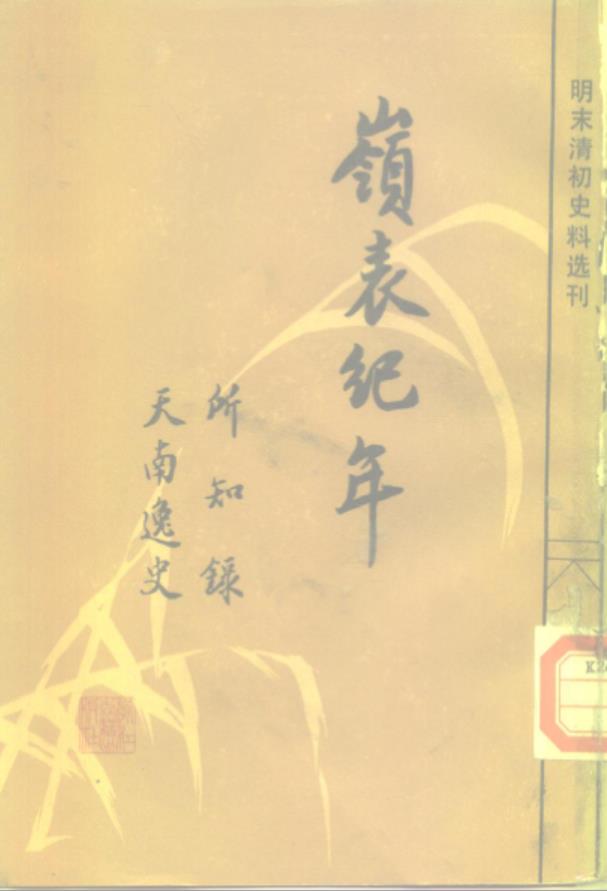 明末清初史料选刊
嶺表纪年
所知録
天南逸史